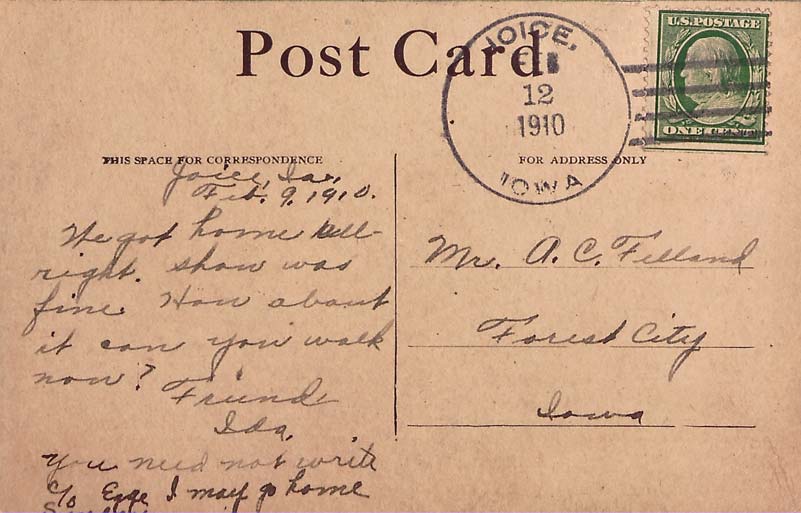 Post Card
JOICE,
12
1910
IOWA
U.S. POSTAGE
ONE CENT
THIS SPACE FOR CORRESPONDENCE
FOR ADDRESS ONLY
Joice, Ia.,
Feb. 9, 1910.
We got home all-
right. show was
fine. How about
it can you walk
now?
Friend
Ida,
You need not write
c/o I may go home
Mr. A. C. Felland
Forest City
Iowa